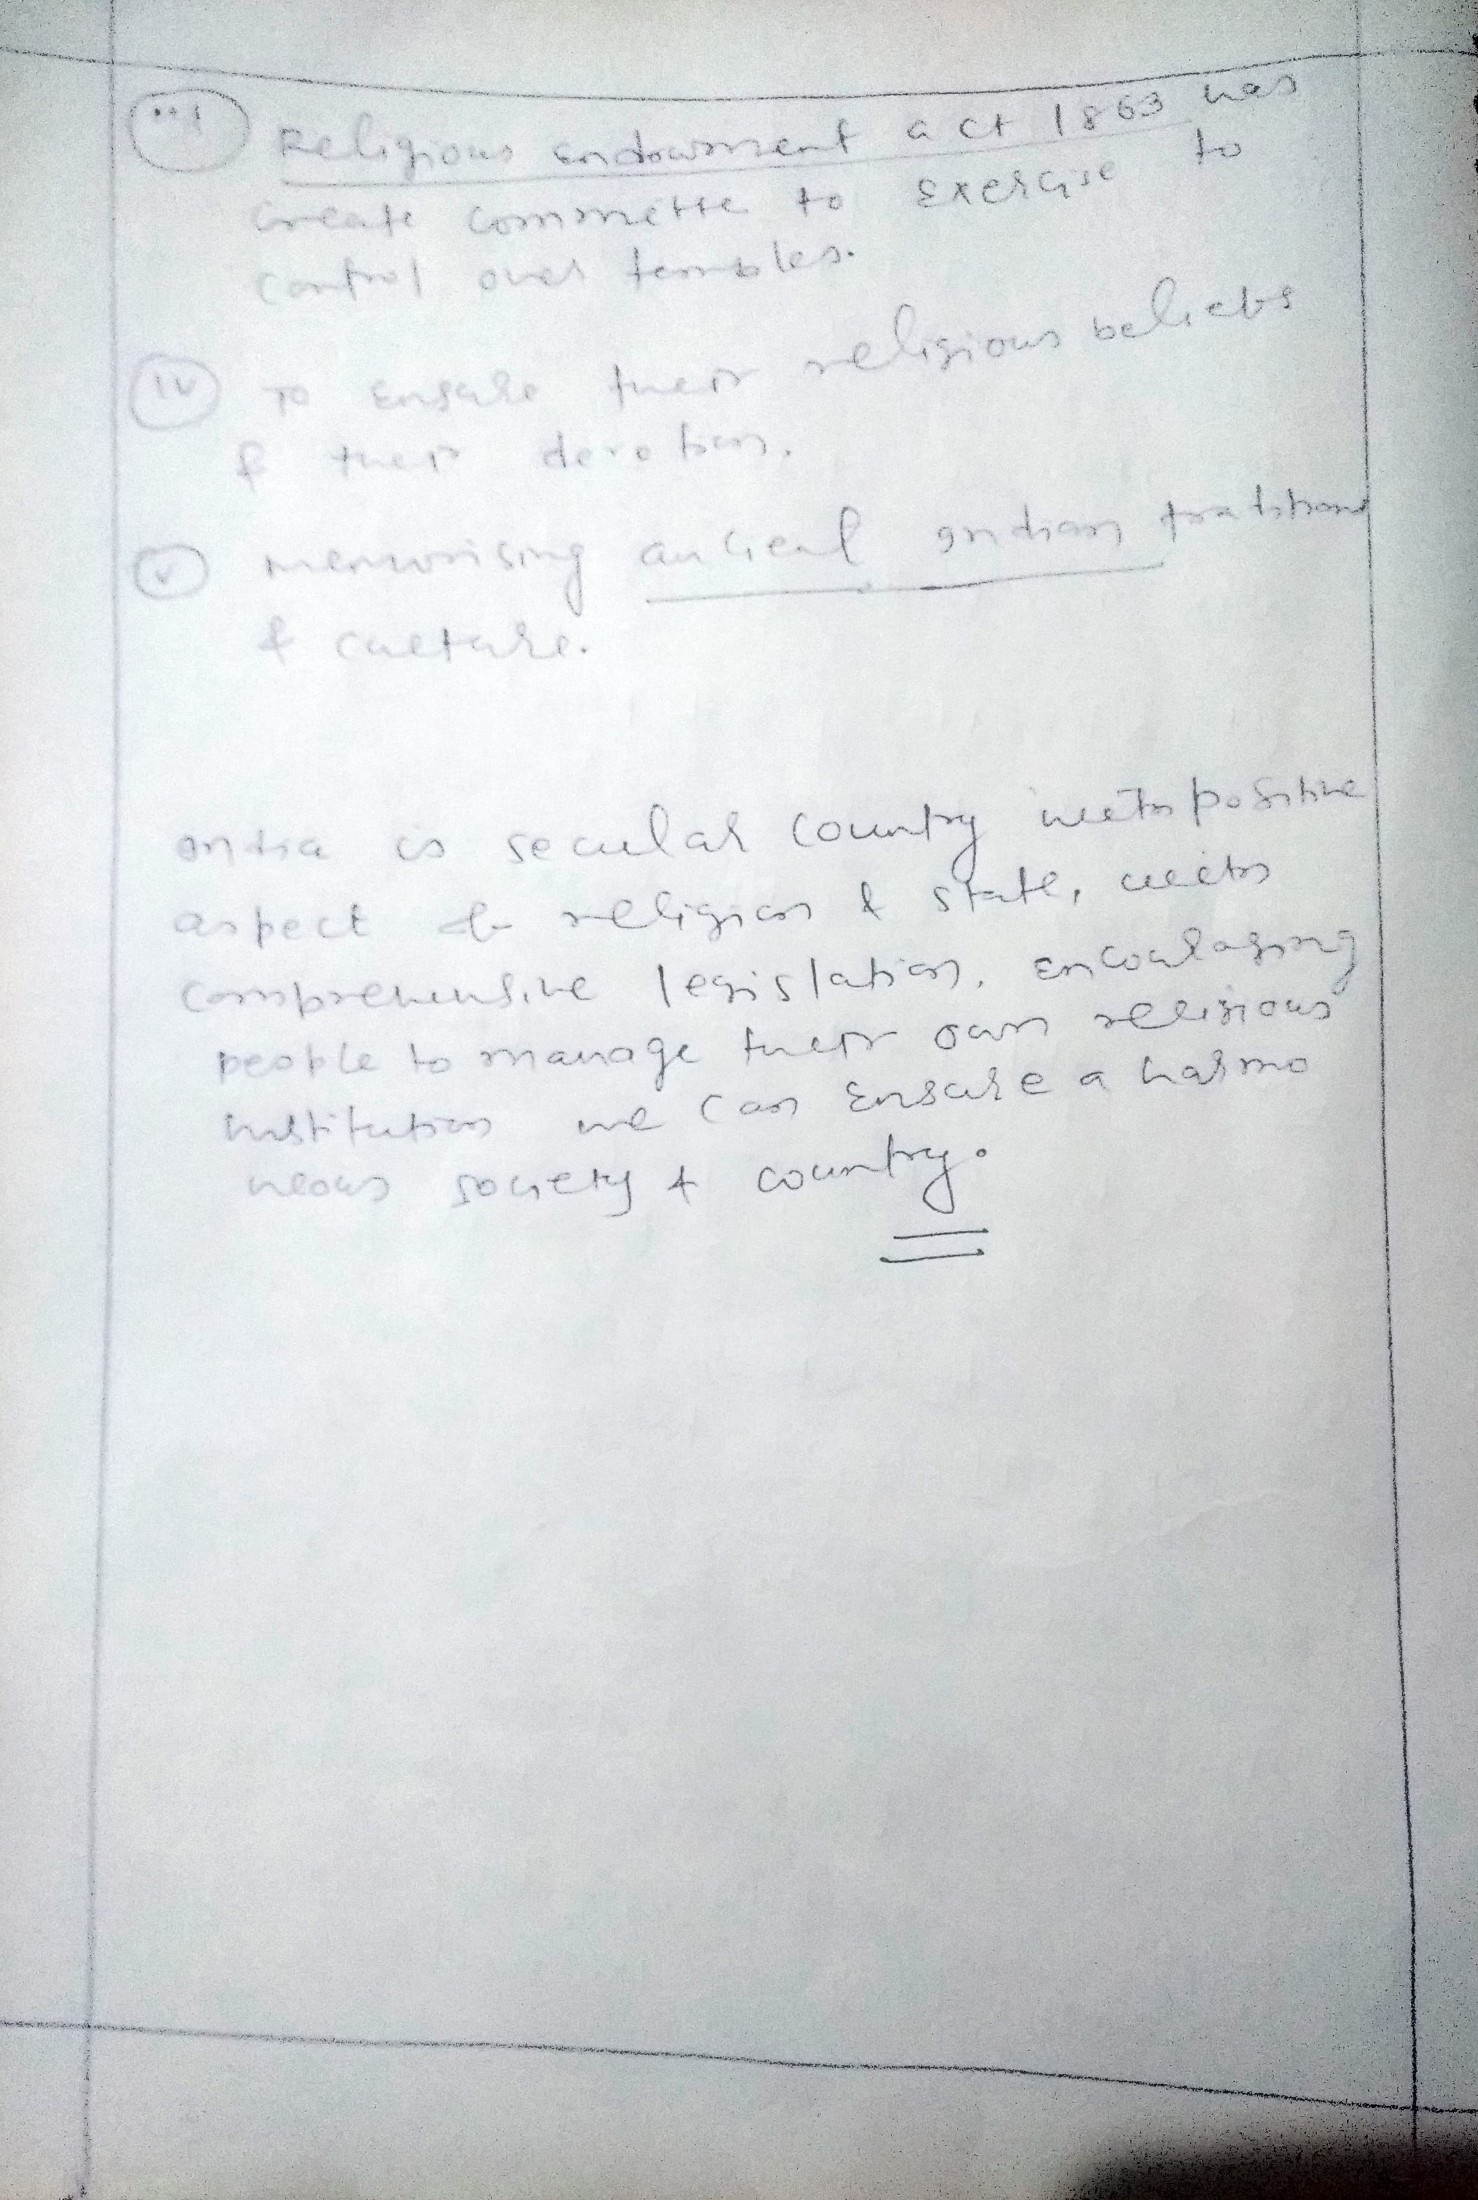 iii Religious endowment act 1863 has
to
create committe to exercise
control over temples.
iv To ensure their religious beliefs
& their devotion.
v memorising ancient Indian traditions
& culture.
India is secular country with positive
aspect of religion & state, with
comprehensive legislation, encouraging
people to manage their own religious
institution we can ensure a harmo
neous society & country.